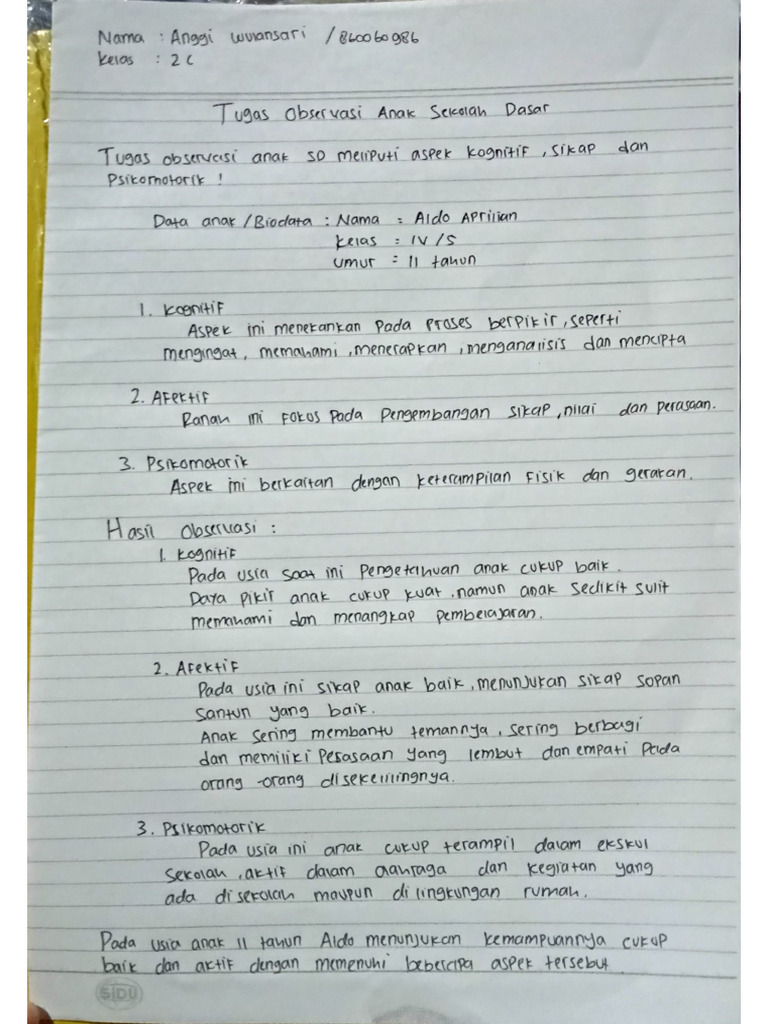 Nama : Anggi Wulansari / 860060986
Kelas : 2 C
Tugas Observasi Anak Sekolah Dasar
Tugas observasi anak SD meliputi aspek kognitif, sikap dan
Psikomotorik !
Data anak / Biodata : Nama : Aldo Aprilian
Kelas : IV / 5
Umur : 11 tahun
1. Kognitif
Aspek ini menekankan pada proses berpikir, seperti
mengingat, memahami, menerapkan, menganalisis dan mencipta
2. Afektif
Ranah ini fokos pada pengembangan sikap, nilai dan perasaan.
3. Psikomotorik
Aspek ini berkaitan dengan keterampilan fisik dan gerakan.
Hasil Observasi :
1. Kognitif
Pada usia saat ini pengetahuan anak cukup baik.
Daya pikir anak cukup kuat, namun anak sedikit sulit
memahami dan menangkap pembelajaran.
2. Afektif
Pada usia ini sikap anak baik, menunjukan sikap sopan
santun yang baik.
Anak sering membantu temannya, sering berbagi
dan memiliki perasaan yang lembut dan empati pada
orang-orang disekelilingnya.
3. Psikomotorik
Pada usia ini anak cukup terampil dalam ekskul
sekolah, aktif dalam olahraga dan kegiatan yang
ada di sekolah maupun di lingkungan rumah.
Pada usia anak 11 tahun Aldo menunjukan kemampuannya cukup
baik dan aktif dengan memenuhi beberapa aspek tersebut.
SIDU